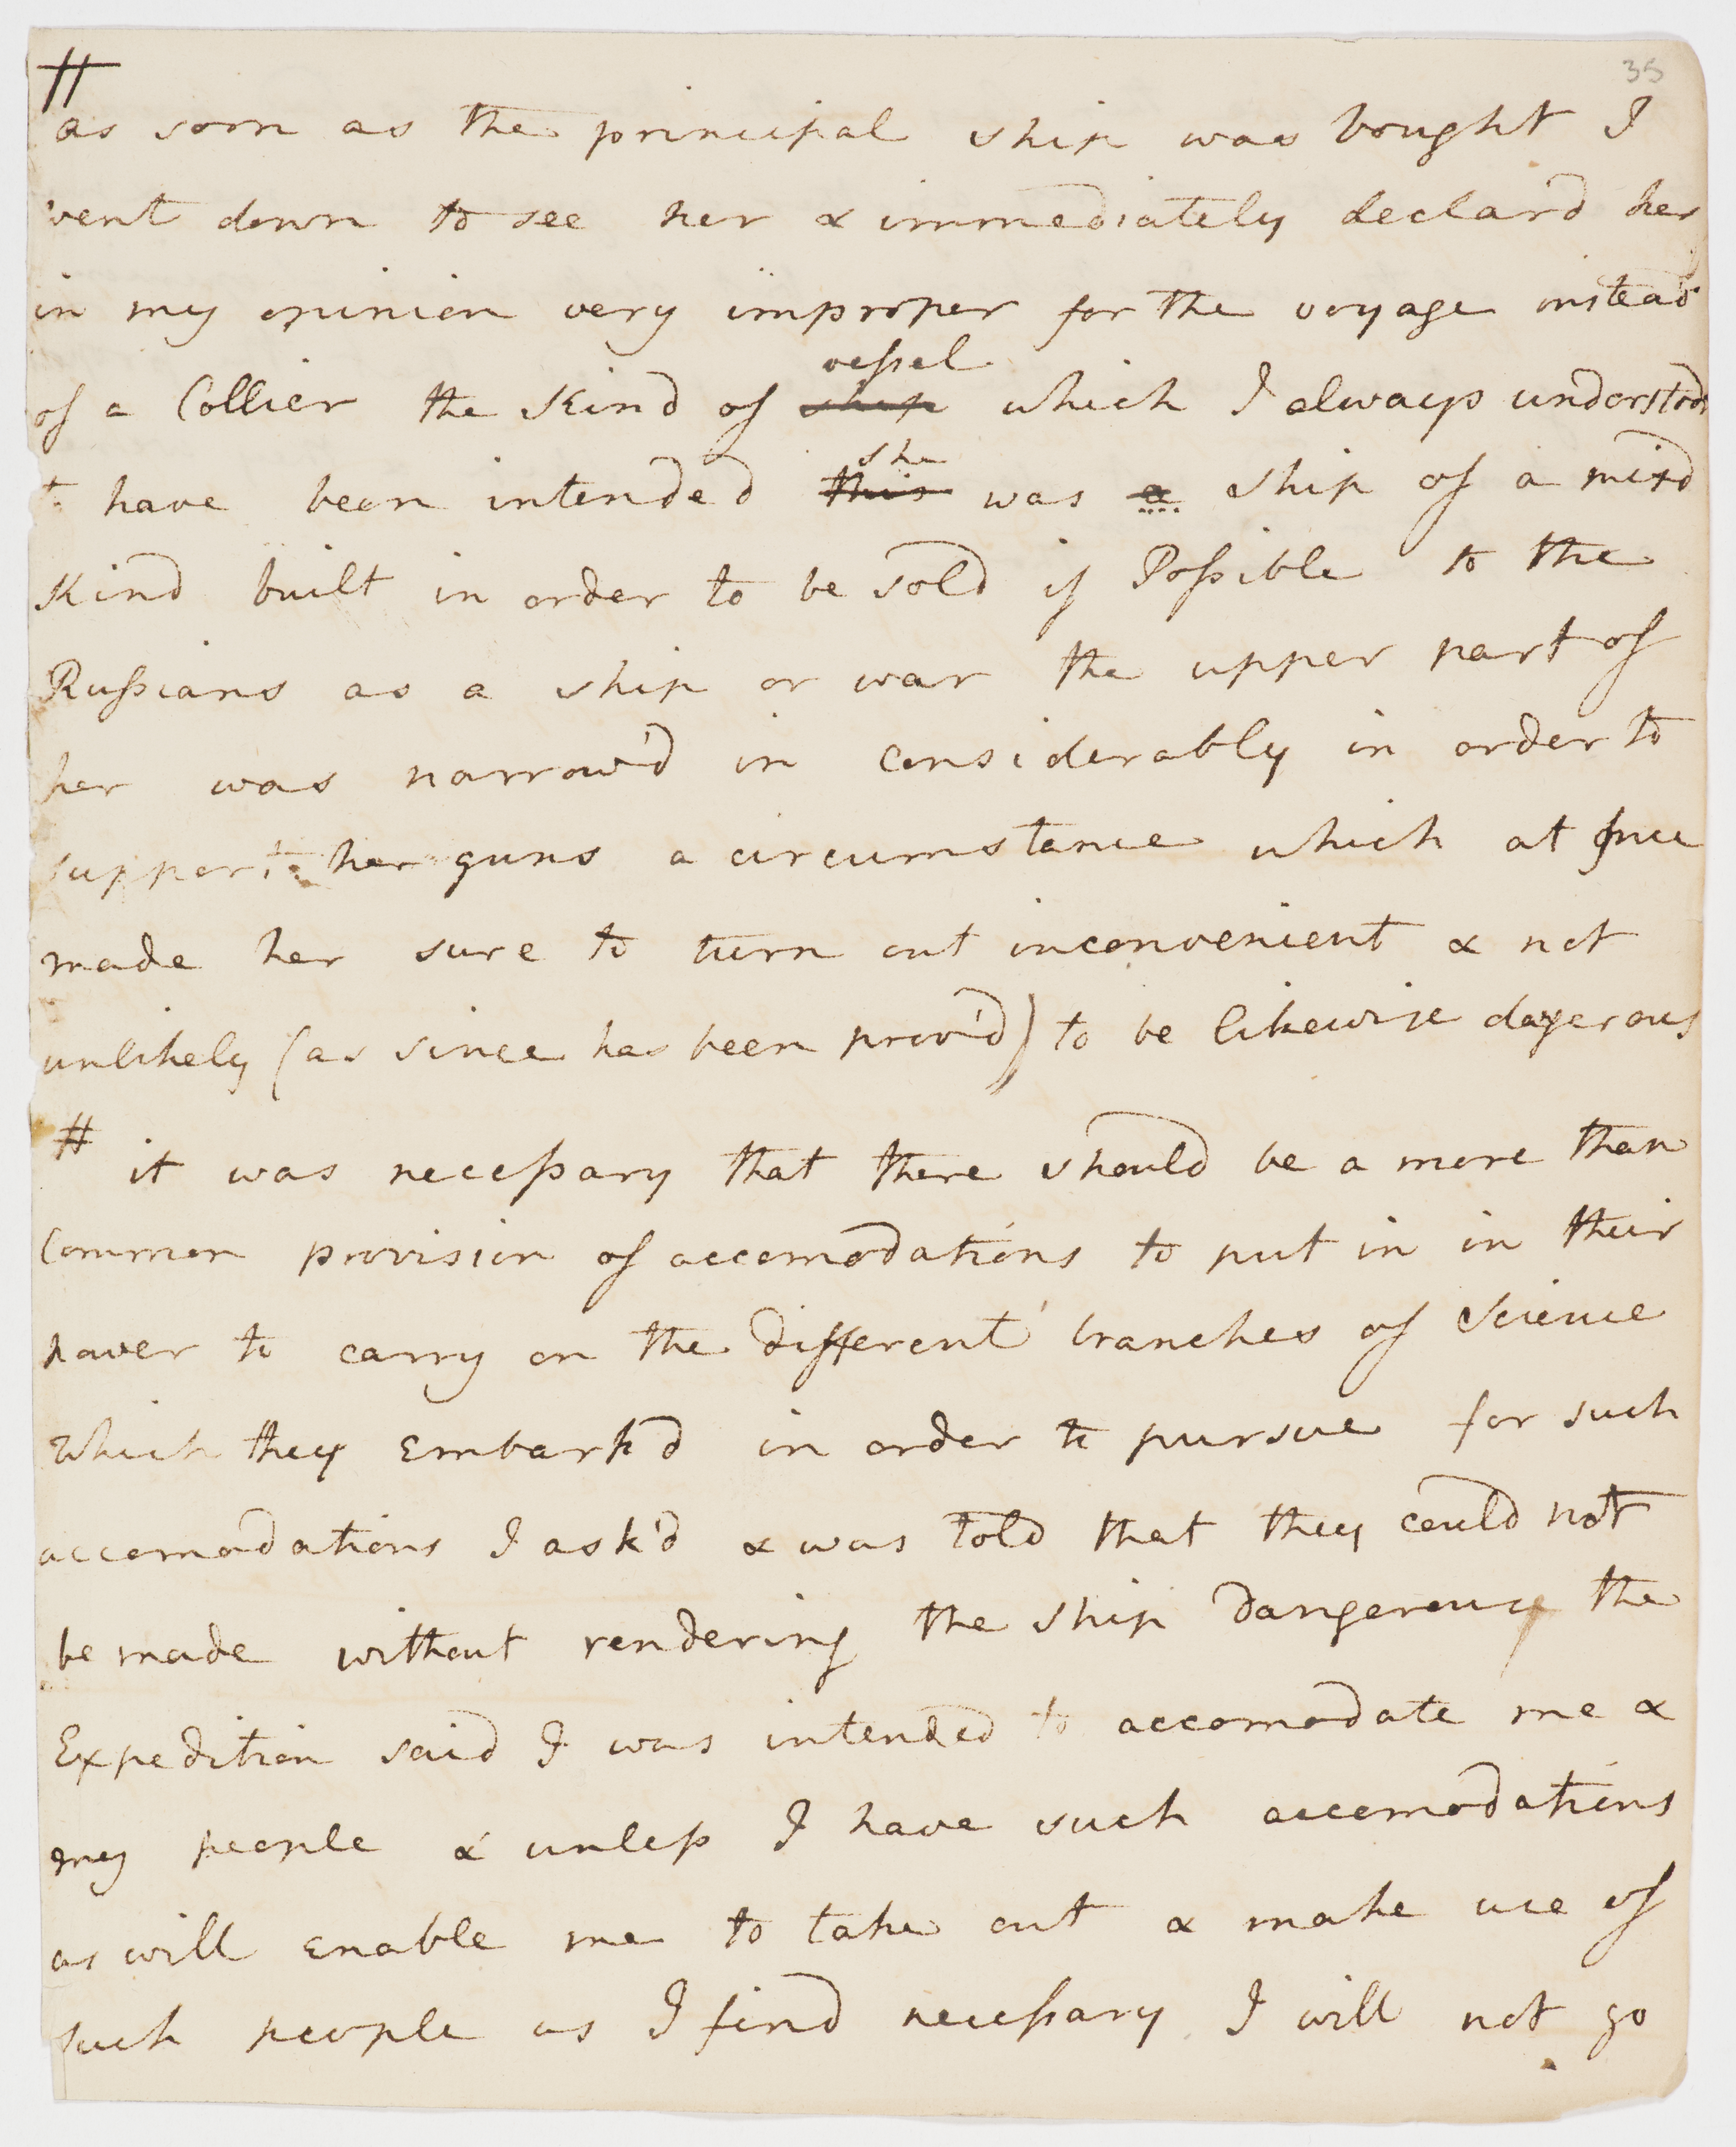 35
#
as soon as the principal ship was bought I
went down to see her & immediately declard her
in my opinion very improper for the voyage instead
of a Collier the Kind of ship vessel which I always understood
to have been intended this she was a ship of a mixd
Kind built in order to be sold if Possible to the
Russians as a ship or war the upper part of
her was narrow'd in considerably in order to
support her guns a circumstance which at once
made her sure to turn out inconvenient & not
unlikely (as since has been prov'd) to be likewise dangerous
# it was necessary that there should be a more than
Common provision of accomodations to put in in their
power to carry on the different branches of Science
Which they Embark'd in order to pursue for such
accomodations I ask'd & was told that they could not
be made without rendering the ship Dangerous the
Expedition said I was intended to accomodate me &
my people & unless I have such accomodations
as will enable me to take out & make use of
such people as I find necessary I will not go